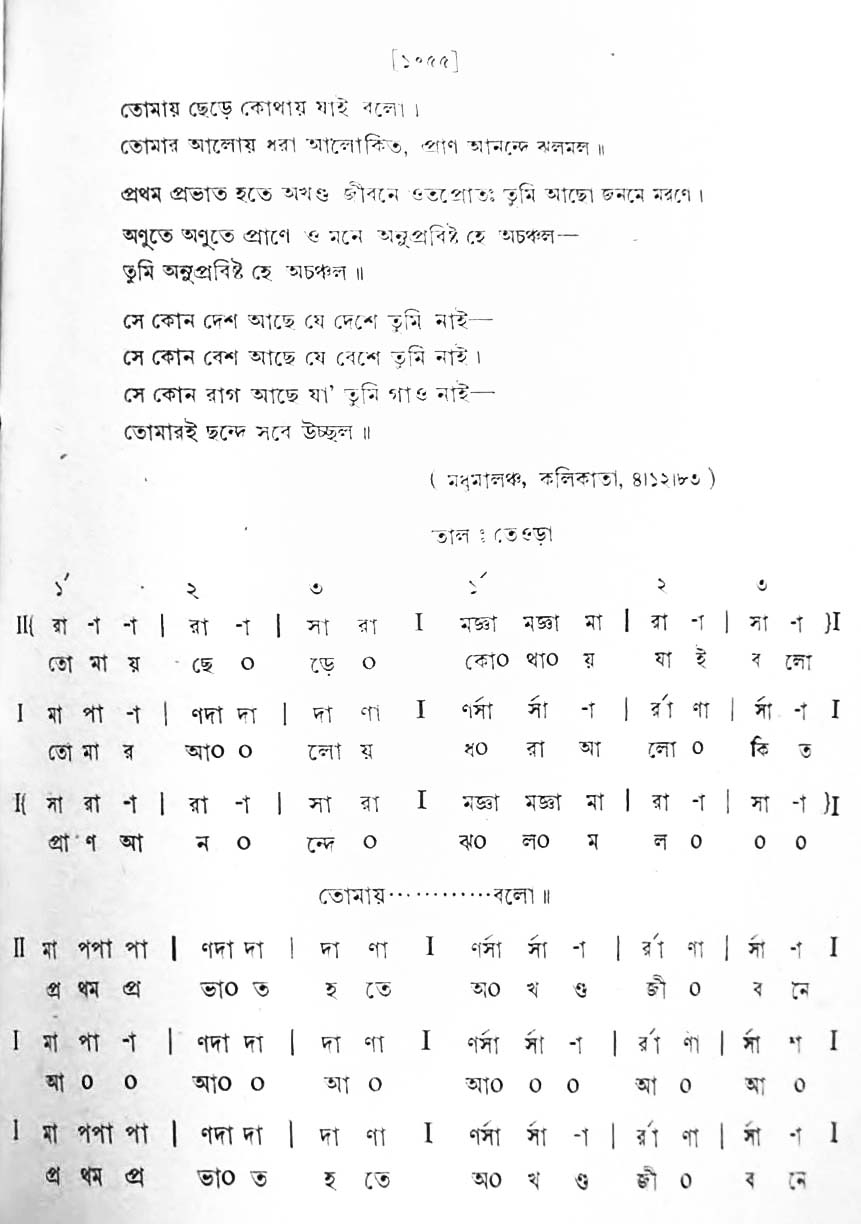 [১০৫৫]
তোমায় ছেড়ে কোথায় যাই বলো।
তোমার আলোয় ধরা আলোকিত, প্রাণ আনন্দে ঝলমল॥
প্রথম প্রভাত হতে অখণ্ড জীবনে ওতপ্রোতঃ তুমি আছো জনমে মরণে।
অণুতে অণুতে প্রাণে ও মনে অনুপ্রবিষ্ট হে অচঞ্চল—
তুমি অনুপ্রবিষ্ট হে অচঞ্চল॥
সে কোন দেশ আছে যে দেশে তুমি নাই—
সে কোন বেশ আছে যে বেশে তুমি নাই।
সে কোন রাগ আছে যা' তুমি গাও নাই—
তোমারই ছন্দে সবে উচ্ছল॥
( মধুমালঞ্চ, কলিকাতা, ৪।১২।৮৩ )
তাল : তেওড়া
১´ ২ ৩ ১´ ২ ৩
II{ রা -া -া | রা -া | সা রা I মজ্ঞা মজ্ঞা মা | রা -া | সা -া }I
তো মা য় ছে ০ ড়ে ০ কো০ থা০ য় যা ই ব লো
I মা পা -া | ণদা দা | দা ণা I ণর্সা র্সা -া | র্রা ণা | র্সা -া I
তো মা র আ০ ০ লো য় ধ০ রা আ লো ০ কি ত
I{ সা রা -া | রা -া | সা রা I মজ্ঞা মজ্ঞা মা | রা -া | সা -া }I
প্রা ণ আ ন ০ ন্দে ০ ঝ০ ল০ ম ল ০ ০ ০
তোমায়············বলো॥
II মা পপা পা | ণদা দা | দা ণা I ণর্সা র্সা -া | র্রা ণা | র্সা -া I
প্র থম প্র ভা০ ত হ তে অ০ খ ণ্ড জী ০ ব নে
I মা পা -া | ণদা দা | দা ণা I ণর্সা র্সা -া | র্রা ণা | র্সা -া I
আ ০ ০ আ০ ০ আ ০ আ০ ০ ০ আ ০ আ ০
I মা পপা পা | ণদা দা | দা ণা I ণর্সা র্সা -া | র্রা ণা | র্সা -া I
প্র থম প্র ভা০ ত হ তে অ০ খ ণ্ড জী ০ ব নে